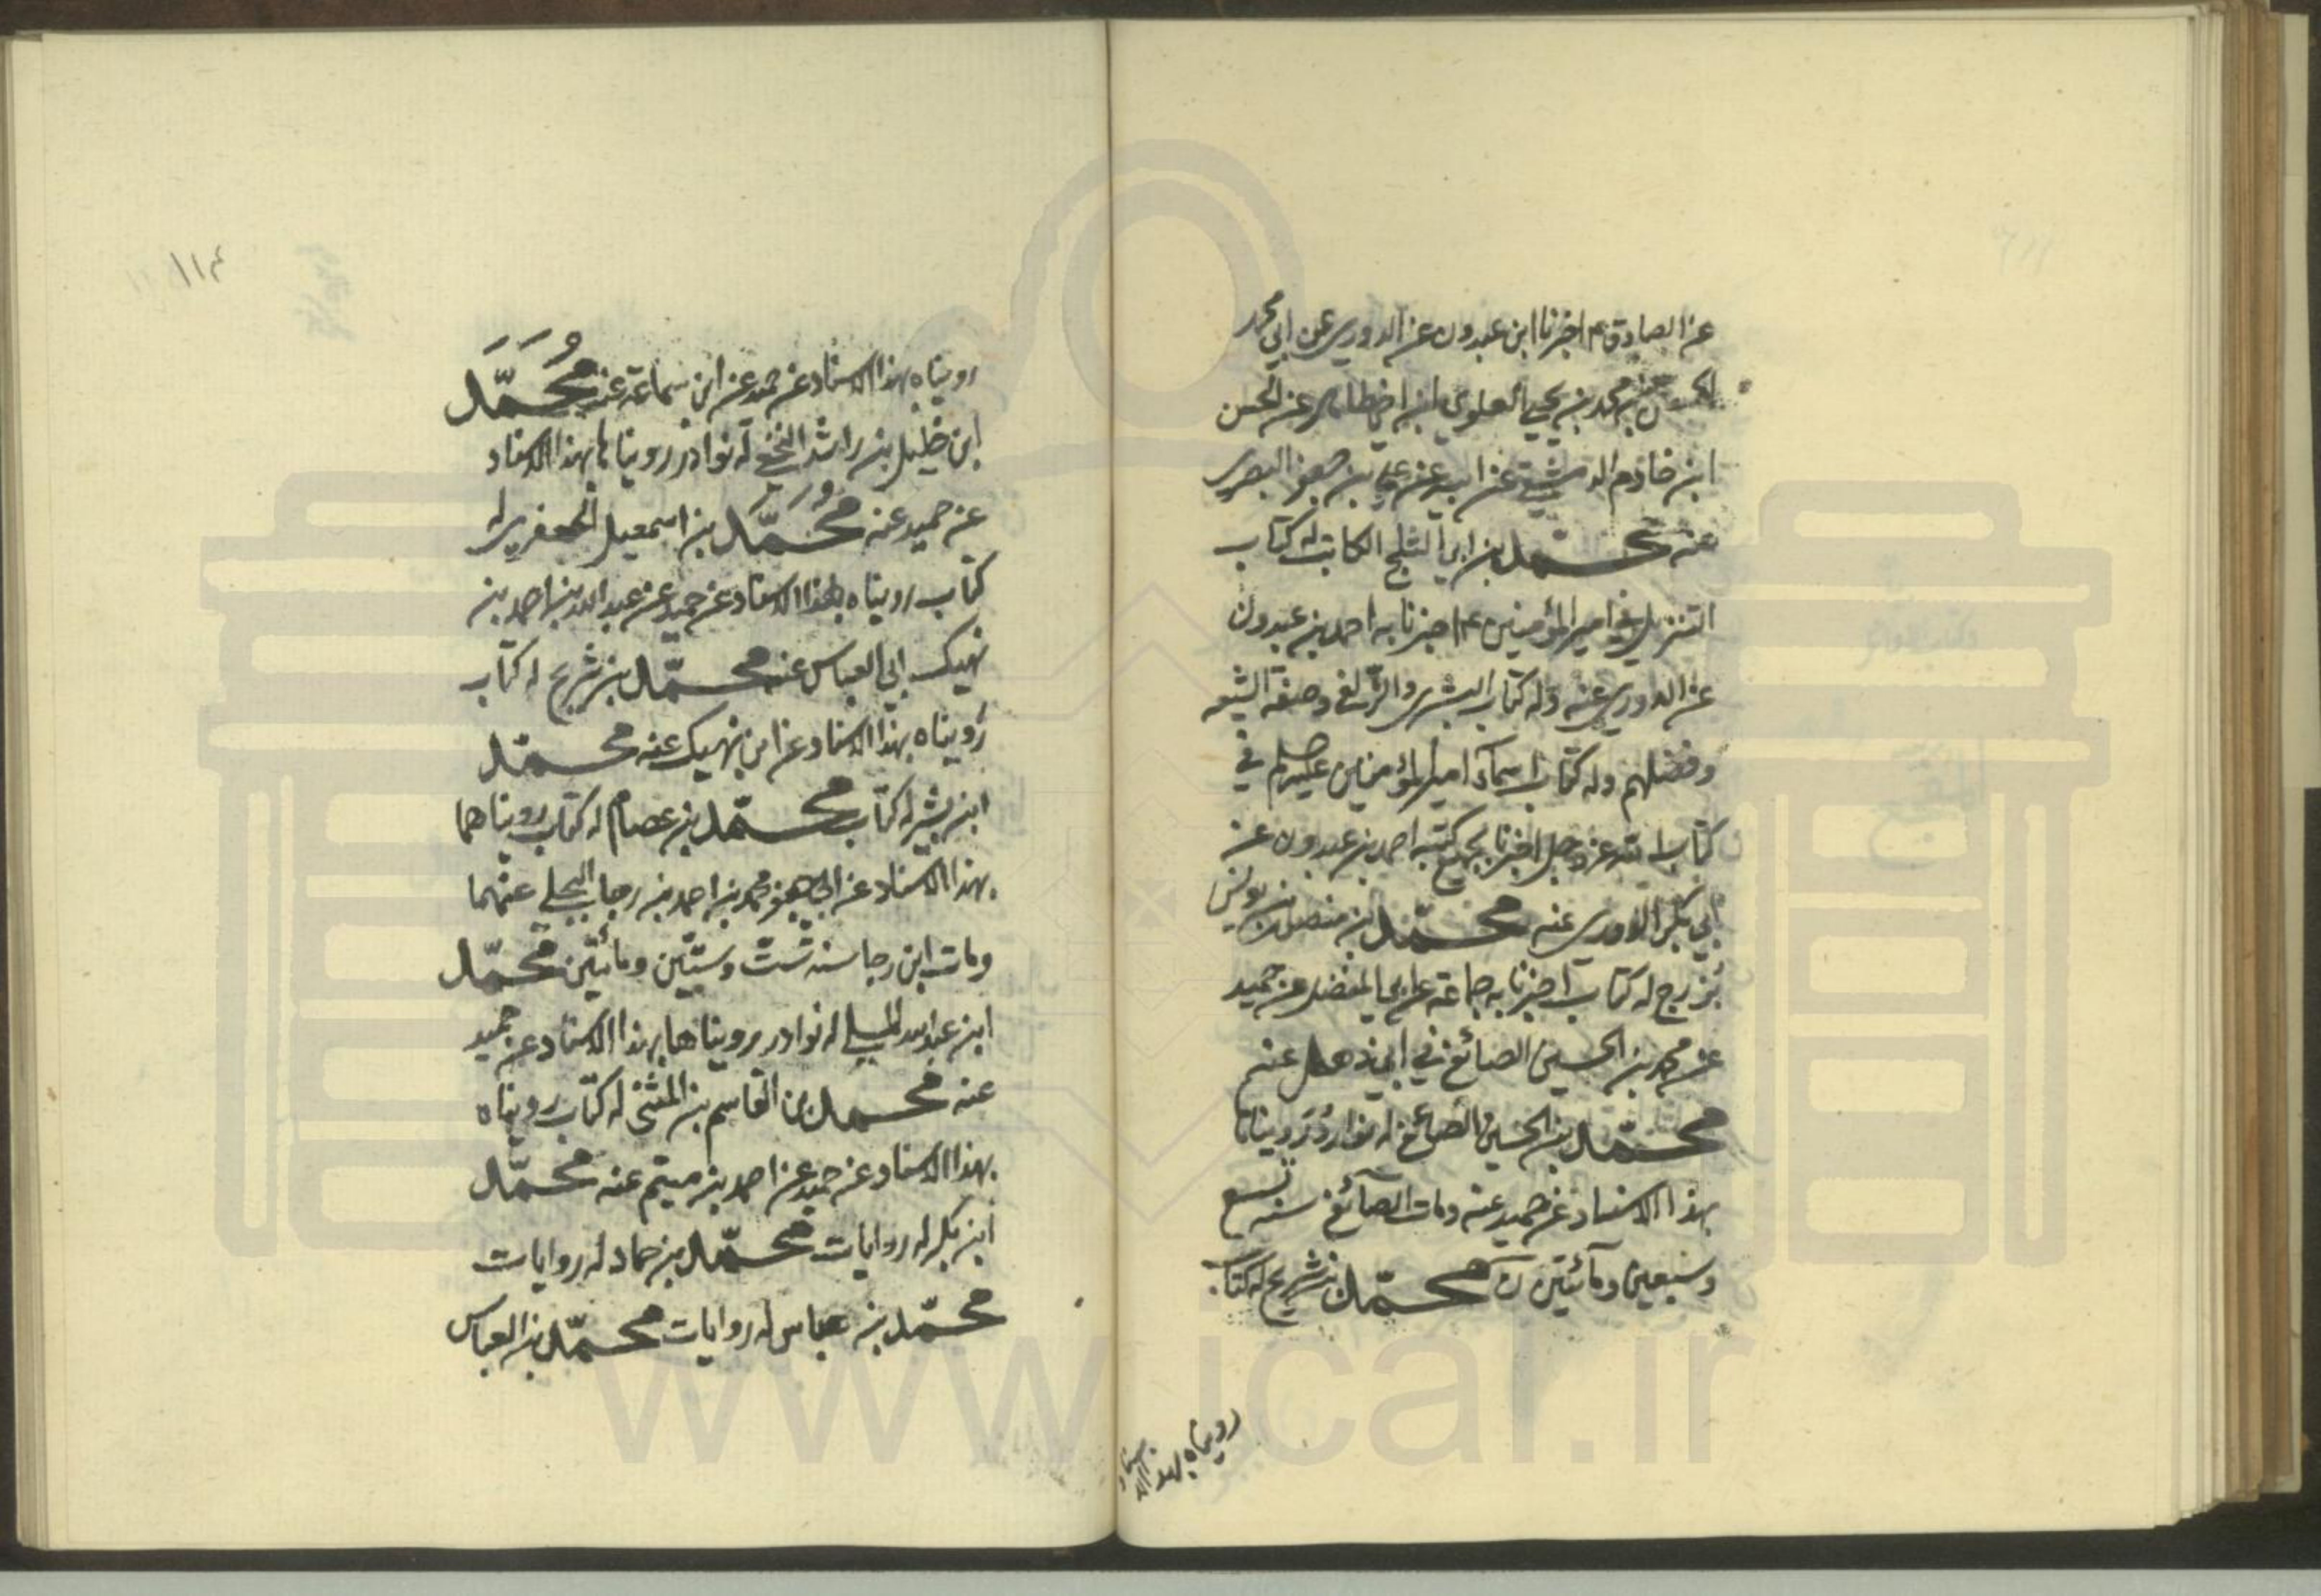 عن الصادق ع اخبرنا ابن عبدون عن الدوري عن ابي محمد
الحسن بن محمد بن يحيى العلوي ابن اخي طاهر عن الحسن
ابن خادم الد عن ابيه عن علي بن جعفر البصري
عنه محمد بن ابي الثلج الكاتب له كتاب
التنزيل في امير المؤمنين ع اخبرنا به احمد بن عبدون
عن الدوري عنه وله كتاب البشرى والزلفى وصفة الشيعه
وفضلهم وله كتاب اسماء امير المؤمنين في
كتاب الله عز وجل اخبرنا بجميع كتبه احمد بن عبدون عن
ابي بكر الدوري عنه محمّد بن منصور بن يونس
بزرج له كتاب اخبرنا به جماعة عن ابي المفضل عن حميد
عن محمد بن الحسين الصائغ في عنه
محمّد بن الحسين الصائغ له نوادر رويناها
بهذا الاسناد عن حميد عنه ومات الصائغ سنه تسع
وسبعين ومائتين محمّد بن شريح له كتاب
رويناه بهذا الاسناد
١١٤
رويناه بهذا الاسناد عن حميد عن ابن سماعة عنه مُحَمَّد
ابن خليل بن راشد النخعي له نوادر رويناها بهذا الاسناد
عن حميد عنه مُحَمَّد بن اسمعيل الجعفري له
كتاب رويناه بهذا الاسناد عن حميد عن عبد الله بن احمد بن
نهيك ابي العباس عنه محمّد بن شريح له كتاب
رويناه بهذا الاسناد عن ابن نهيك عنه محمّد
ابن بشير له كتاب محمّد بن عصام له كتاب رويناهما
بهذا الاسناد عن ابي جعفر محمد بن احمد بن رجا البجلي عنهما
ومات ابن رجا سنه ستّ وستّين ومائتين محمّد
ابن عبد الله المسلي له نوادر رويناها بهذا الاسناد عن حميد
عنه محمد بن القاسم بن المثنى له كتاب رويناه
بهذا الاسناد عن حميد عن احمد بن ميثم عنه محمّد
ابن بكر له روايات محمّد بن حماد له روايات
محمّد بن عباس له روايات محمّد بن العباس
www.ical.ir